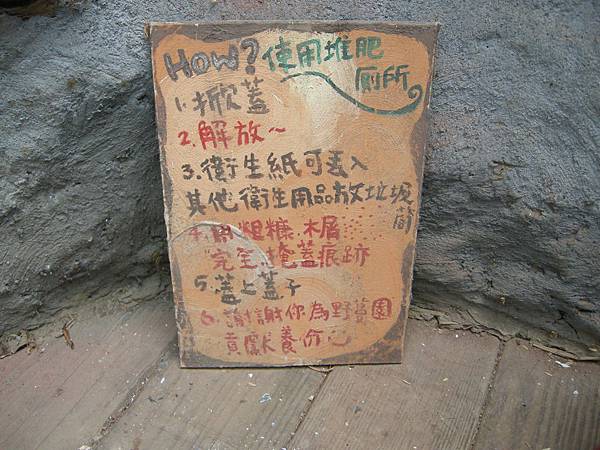 HOW? 使用堆肥
廁所
1.掀蓋
2.解放~
3.衛生紙可丟入
其他衛生用品放垃圾
筒
4.用粗糠.木屑
完全掩蓋痕跡
5.蓋上蓋子
6.謝謝你為野蔓園
貢獻養份